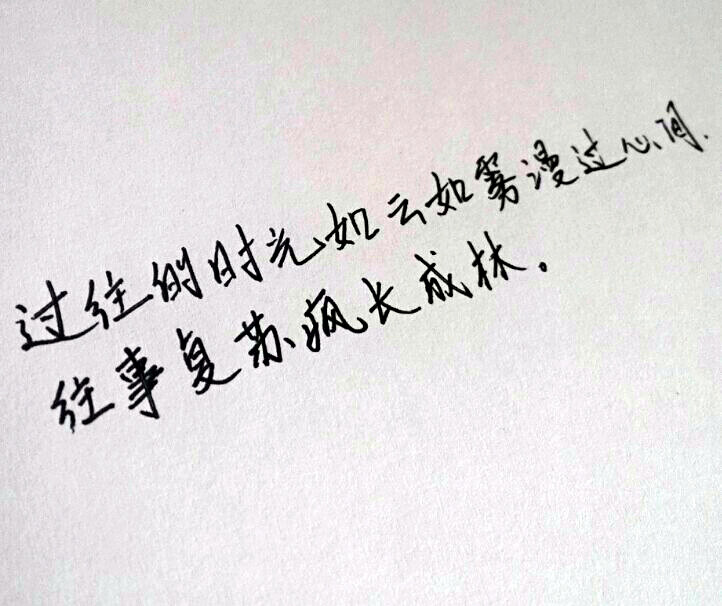 过往的时光如云如雾漫过心间.
往事复苏疯长成林。